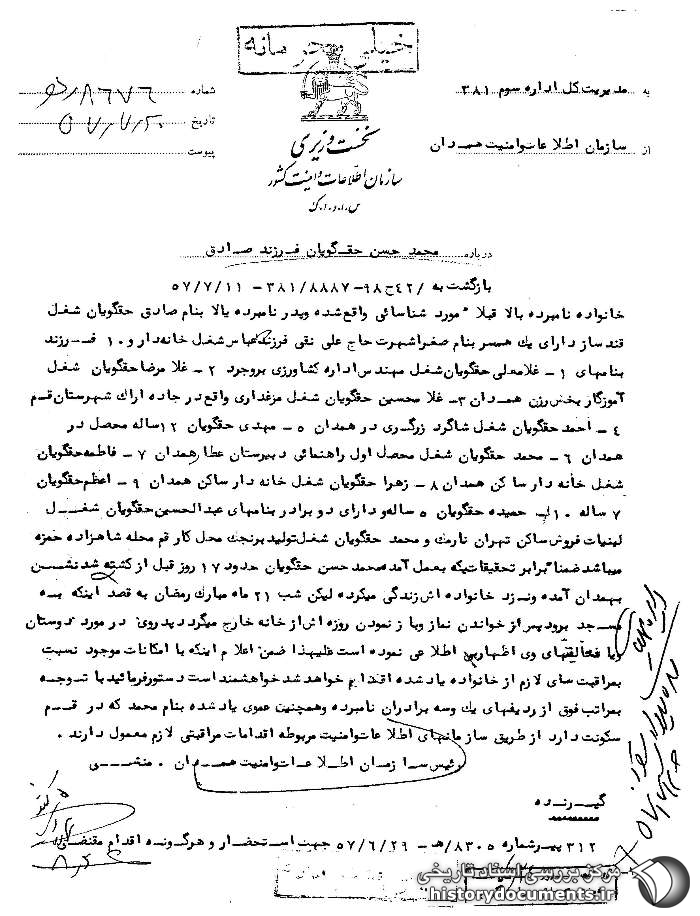 خیلی محرمانه
به مدیریت کل اداره سوم ۳۸۱
شماره ۸۶۷۶
از سازمان اطلاعات و امنیت همدان
تاریخ
پیوست
نخست وزیری
سازمان اطلاعات و امنیت کشور
س.ا.و.ا.ک
درباره محمد حسن حقگویان فرزند صادق
بازگشت به /۴۲ح۹۸- ۳۸۱/۸۸۸۷ - ۵۷/۷/۱۱
خانواده نامبرده بالا قبلا" مورد شناسائی واقع شده وپدر نامبرده بالا بنام صادق حقگویان شغل
قند ساز دارای یک همسر بنام صغرا شهرت حاج علی نقی فرزند عباس شغل خانه دار و ۱۰ فرزند
بنامهای ۱ - غلامعلی حقگویان شغل مهندس اداره کشاورزی بروجرد ۲ - غلامرضا حقگویان شغل
آموزگار بخش رزن همدان ۳- غلامحسین حقگویان شغل مرغداری واقع در جاده اراک شهرستان قم
۴ - احمد حقگویان شغل شاگرد زرگری در همدان ۵ - مهدی حقگویان ۱۲ساله محصل در
همدان ۶ - محمد حقگویان شغل محصل اول راهنمائی دبیرستان عطار همدان ۷ - فاطمه حقگویان
شغل خانه دار ساکن همدان ۸ - زهرا حقگویان شغل خانه دار ساکن همدان ۹ - اعظم حقگویان
۷ ساله ۱۰- حمیده حقگویان ۵ ساله و دارای دو برادر بنامهای عبدالحسین حقگویان شغل
لبنیات فروش ساکن تهران نارمک و محمد حقگویان شغل تولید برنجک محل کار قم محله شاهزاده حمزه
میباشد ضمنا" برابر تحقیقاتیکه بعمل آمده محمد حسن حقگویان حدود ۱۷ روز قبل از کشته شدنش
بهمدان آمده ونزد خانواده اش زندگی میکرده لیکن شب ۲۱ ماه مبارک رمضان به قصد اینکه به
مسجد برود پس از خواندن نماز وباز نمودن روزه اش از خانه خارج میگردد پدر وی در مورد دوستان
ویا فعالیتهای وی اظهار بی اطلاعی نموده است علیهذا ضمن اعلام اینکه با امکانات موجود نسبت
بمراقبت های لازم از خانواده یاد شده اقدام خواهد شد خواهشمند است دستور فرمائید با توجه
بمراتب فوق از ردیفهای یک وسه برادران نامبرده وهمچنین عموی یاد شده بنام محمد که در قم
سکونت دارد از طریق سازمانهای اطلاعات و امنیت مربوطه اقدامات مراقبتی لازم معمول دارند .
رئیس سازمان اطلاعات و امنیت همدان . منشی
گیرنده
۳۱۲ پیرو شماره ۸۳۰۵/هـ - ۵۷/۶/۲۹ جهت استحضار و هرگونه اقدام مقتضی
مرکز بررسی اسناد تاریخی
historydocuments.ir